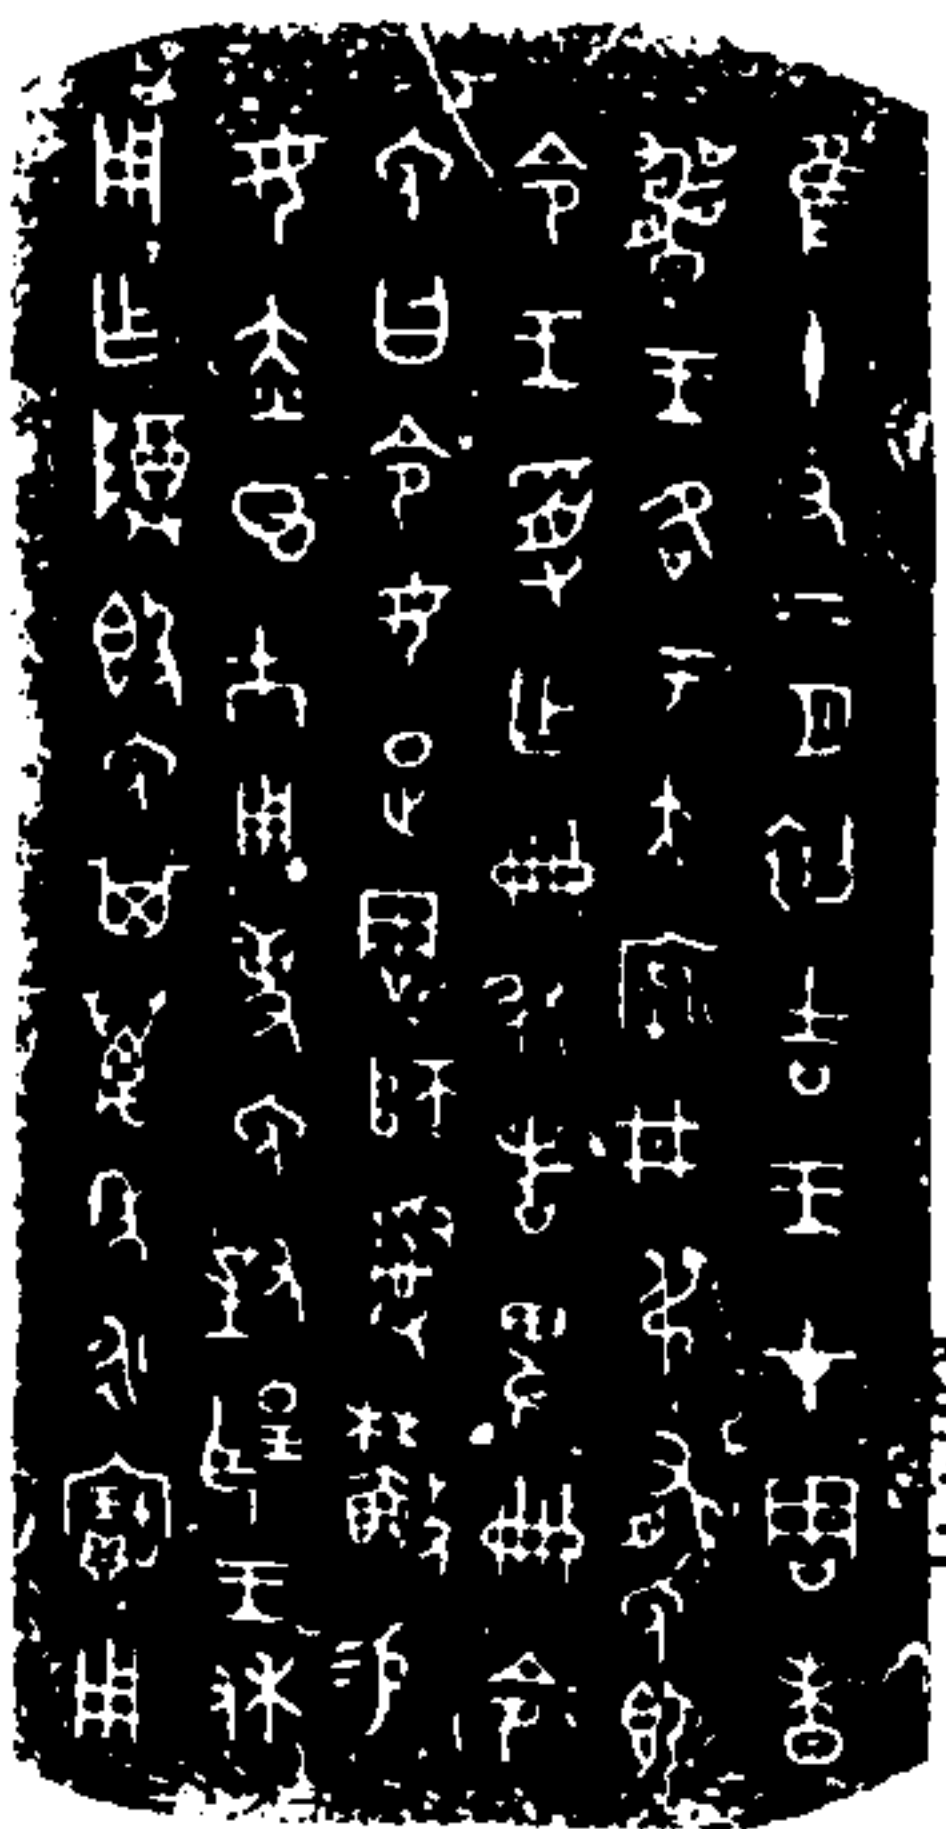 隹十又二月初吉王才周昧
爽王各于大廟井叔有免即
令王受乍冊尹者卑冊令
免曰令女疋周師𤔲𣏟易
女赤⊘巿用事免對揚王休
用乍𬯚𣪘免其萬年永寶用